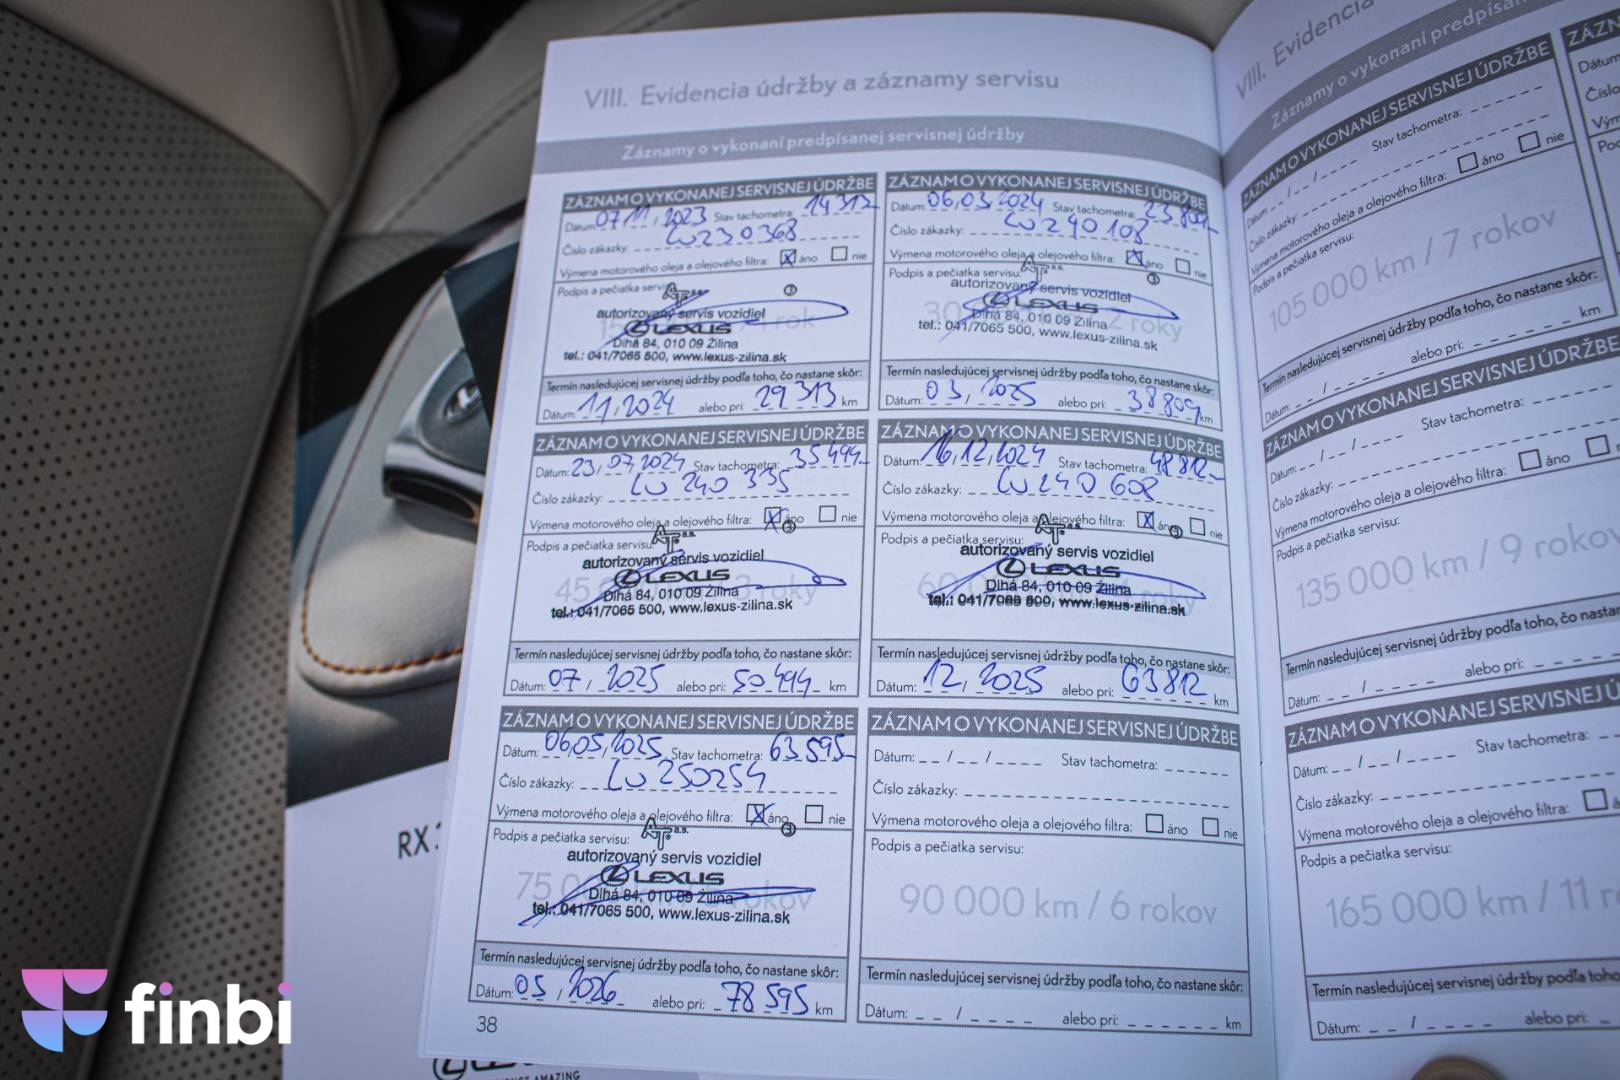 VIII. Evidencia údržby a záznamy servisu
Záznamy o vykonaní predpísanej servisnej údržby
ZÁZNAM O VYKONANEJ SERVISNEJ ÚDRŽBE
Dátum: 07/11/2023 Stav tachometra: 14313
Číslo zákazky: LV230368
Výmena motorového oleja a olejového filtra: áno nie
Podpis a pečiatka servisu:
autorizovaný servis vozidiel
LEXUS
Dlhá 84, 010 09 Žilina
tel.: 041/7065 500, www.lexus-zilina.sk
Termín nasledujúcej servisnej údržby podľa toho, čo nastane skôr:
Dátum: 11/2024 alebo pri: 29 313 km
ZÁZNAM O VYKONANEJ SERVISNEJ ÚDRŽBE
Dátum: 06/03/2024 Stav tachometra: 23809
Číslo zákazky: LV240108
Výmena motorového oleja a olejového filtra: áno nie
Podpis a pečiatka servisu:
autorizovaný servis vozidiel
LEXUS
Dlhá 84, 010 09 Žilina
tel.: 041/7065 500, www.lexus-zilina.sk
Termín nasledujúcej servisnej údržby podľa toho, čo nastane skôr:
Dátum: 03/2025 alebo pri: 38809 km
ZÁZNAM O VYKONANEJ SERVISNEJ ÚDRŽBE
Dátum: 23/07/2024 Stav tachometra: 35494
Číslo zákazky: LV240335
Výmena motorového oleja a olejového filtra: áno nie
Podpis a pečiatka servisu:
autorizovaný servis vozidiel
LEXUS
Dlhá 84, 010 09 Žilina
tel.: 041/7065 500, www.lexus-zilina.sk
Termín nasledujúcej servisnej údržby podľa toho, čo nastane skôr:
Dátum: 07/2025 alebo pri: 50494 km
ZÁZNAM O VYKONANEJ SERVISNEJ ÚDRŽBE
Dátum: 16/12/2024 Stav tachometra: 48812
Číslo zákazky: LV240608
Výmena motorového oleja a olejového filtra: áno nie
Podpis a pečiatka servisu:
autorizovaný servis vozidiel
LEXUS
Dlhá 84, 010 09 Žilina
tel.: 041/7065 500, www.lexus-zilina.sk
Termín nasledujúcej servisnej údržby podľa toho, čo nastane skôr:
Dátum: 12/2025 alebo pri: 63812 km
ZÁZNAM O VYKONANEJ SERVISNEJ ÚDRŽBE
Dátum: 06/05/2025 Stav tachometra: 63595
Číslo zákazky: LV250254
Výmena motorového oleja a olejového filtra: áno nie
Podpis a pečiatka servisu:
autorizovaný servis vozidiel
LEXUS
Dlhá 84, 010 09 Žilina
tel.: 041/7065 500, www.lexus-zilina.sk
Termín nasledujúcej servisnej údržby podľa toho, čo nastane skôr:
Dátum: 05/2026 alebo pri: 78595 km
ZÁZNAM O VYKONANEJ SERVISNEJ ÚDRŽBE
Dátum: / / Stav tachometra:
Číslo zákazky:
Výmena motorového oleja a olejového filtra: áno nie
Podpis a pečiatka servisu:
90 000 km / 6 rokov
Termín nasledujúcej servisnej údržby podľa toho, čo nastane skôr:
Dátum: / alebo pri: km
38
VIII. Evidencia
Záznamy o vykonaní predpísanej
ZÁZNAM O VYKONANEJ SERVISNEJ ÚDRŽBE
Dátum: / / Stav tachometra:
Číslo zákazky:
Výmena motorového oleja a olejového filtra: áno nie
Podpis a pečiatka servisu:
105 000 km / 7 rokov
Termín nasledujúcej servisnej údržby podľa toho, čo nastane skôr:
Dátum: / alebo pri: km
ZÁZNAM O VYKONANEJ SERVISNEJ ÚDRŽBE
Dátum: / / Stav tachometra:
Číslo zákazky:
Výmena motorového oleja a olejového filtra: áno
Podpis a pečiatka servisu:
135 000 km / 9 rokov
Termín nasledujúcej servisnej údržby podľa toho, čo nastane
Dátum: / alebo pri:
ZÁZNAM O VYKONANEJ SERVISNEJ
Dátum: / / Stav tachometra:
Číslo zákazky:
Výmena motorového oleja a olejového filtra:
Podpis a pečiatka servisu:
165 000 km / 11
Termín nasledujúcej servisnej údržby podľa toho, čo
Dátum: / alebo pri:
Dátum
Číslo
RX
AMAZING
finbi